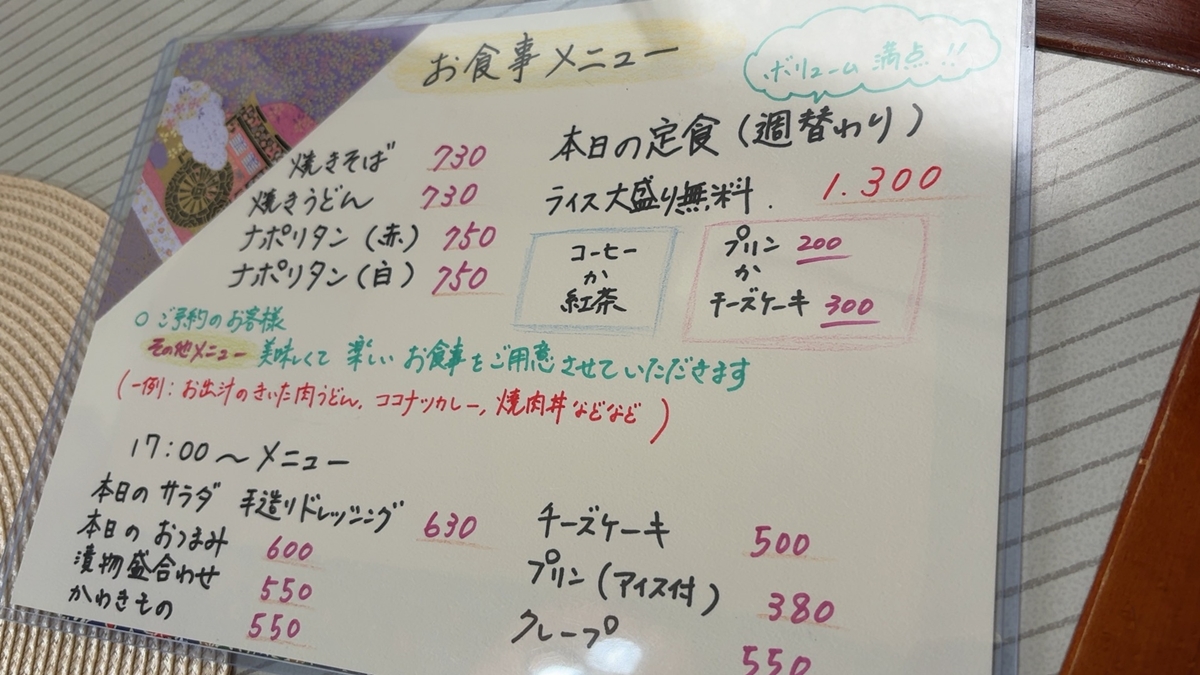 お食事メニュー
ボリューム満点!!
焼きそば 730
焼きうどん 730
ナポリタン(赤) 750
ナポリタン(白) 750
本日の定食(週替わり)
1.300
ライス大盛り無料.
コーヒー
か
紅茶
プリン 200
か
チーズケーキ 300
○ご予約のお客様
その他メニュー 美味しくて 楽しい お食事をご用意させていただきます
(一例:お出汁のきいた肉うどん,ココナツカレー,焼肉丼などなど)
17:00〜メニュー
本日のサラダ 手造りドレッシング 630
本日のおつまみ 600
漬物盛合わせ 550
かわきもの 550
チーズケーキ 500
プリン(アイス付) 380
クレープ 550